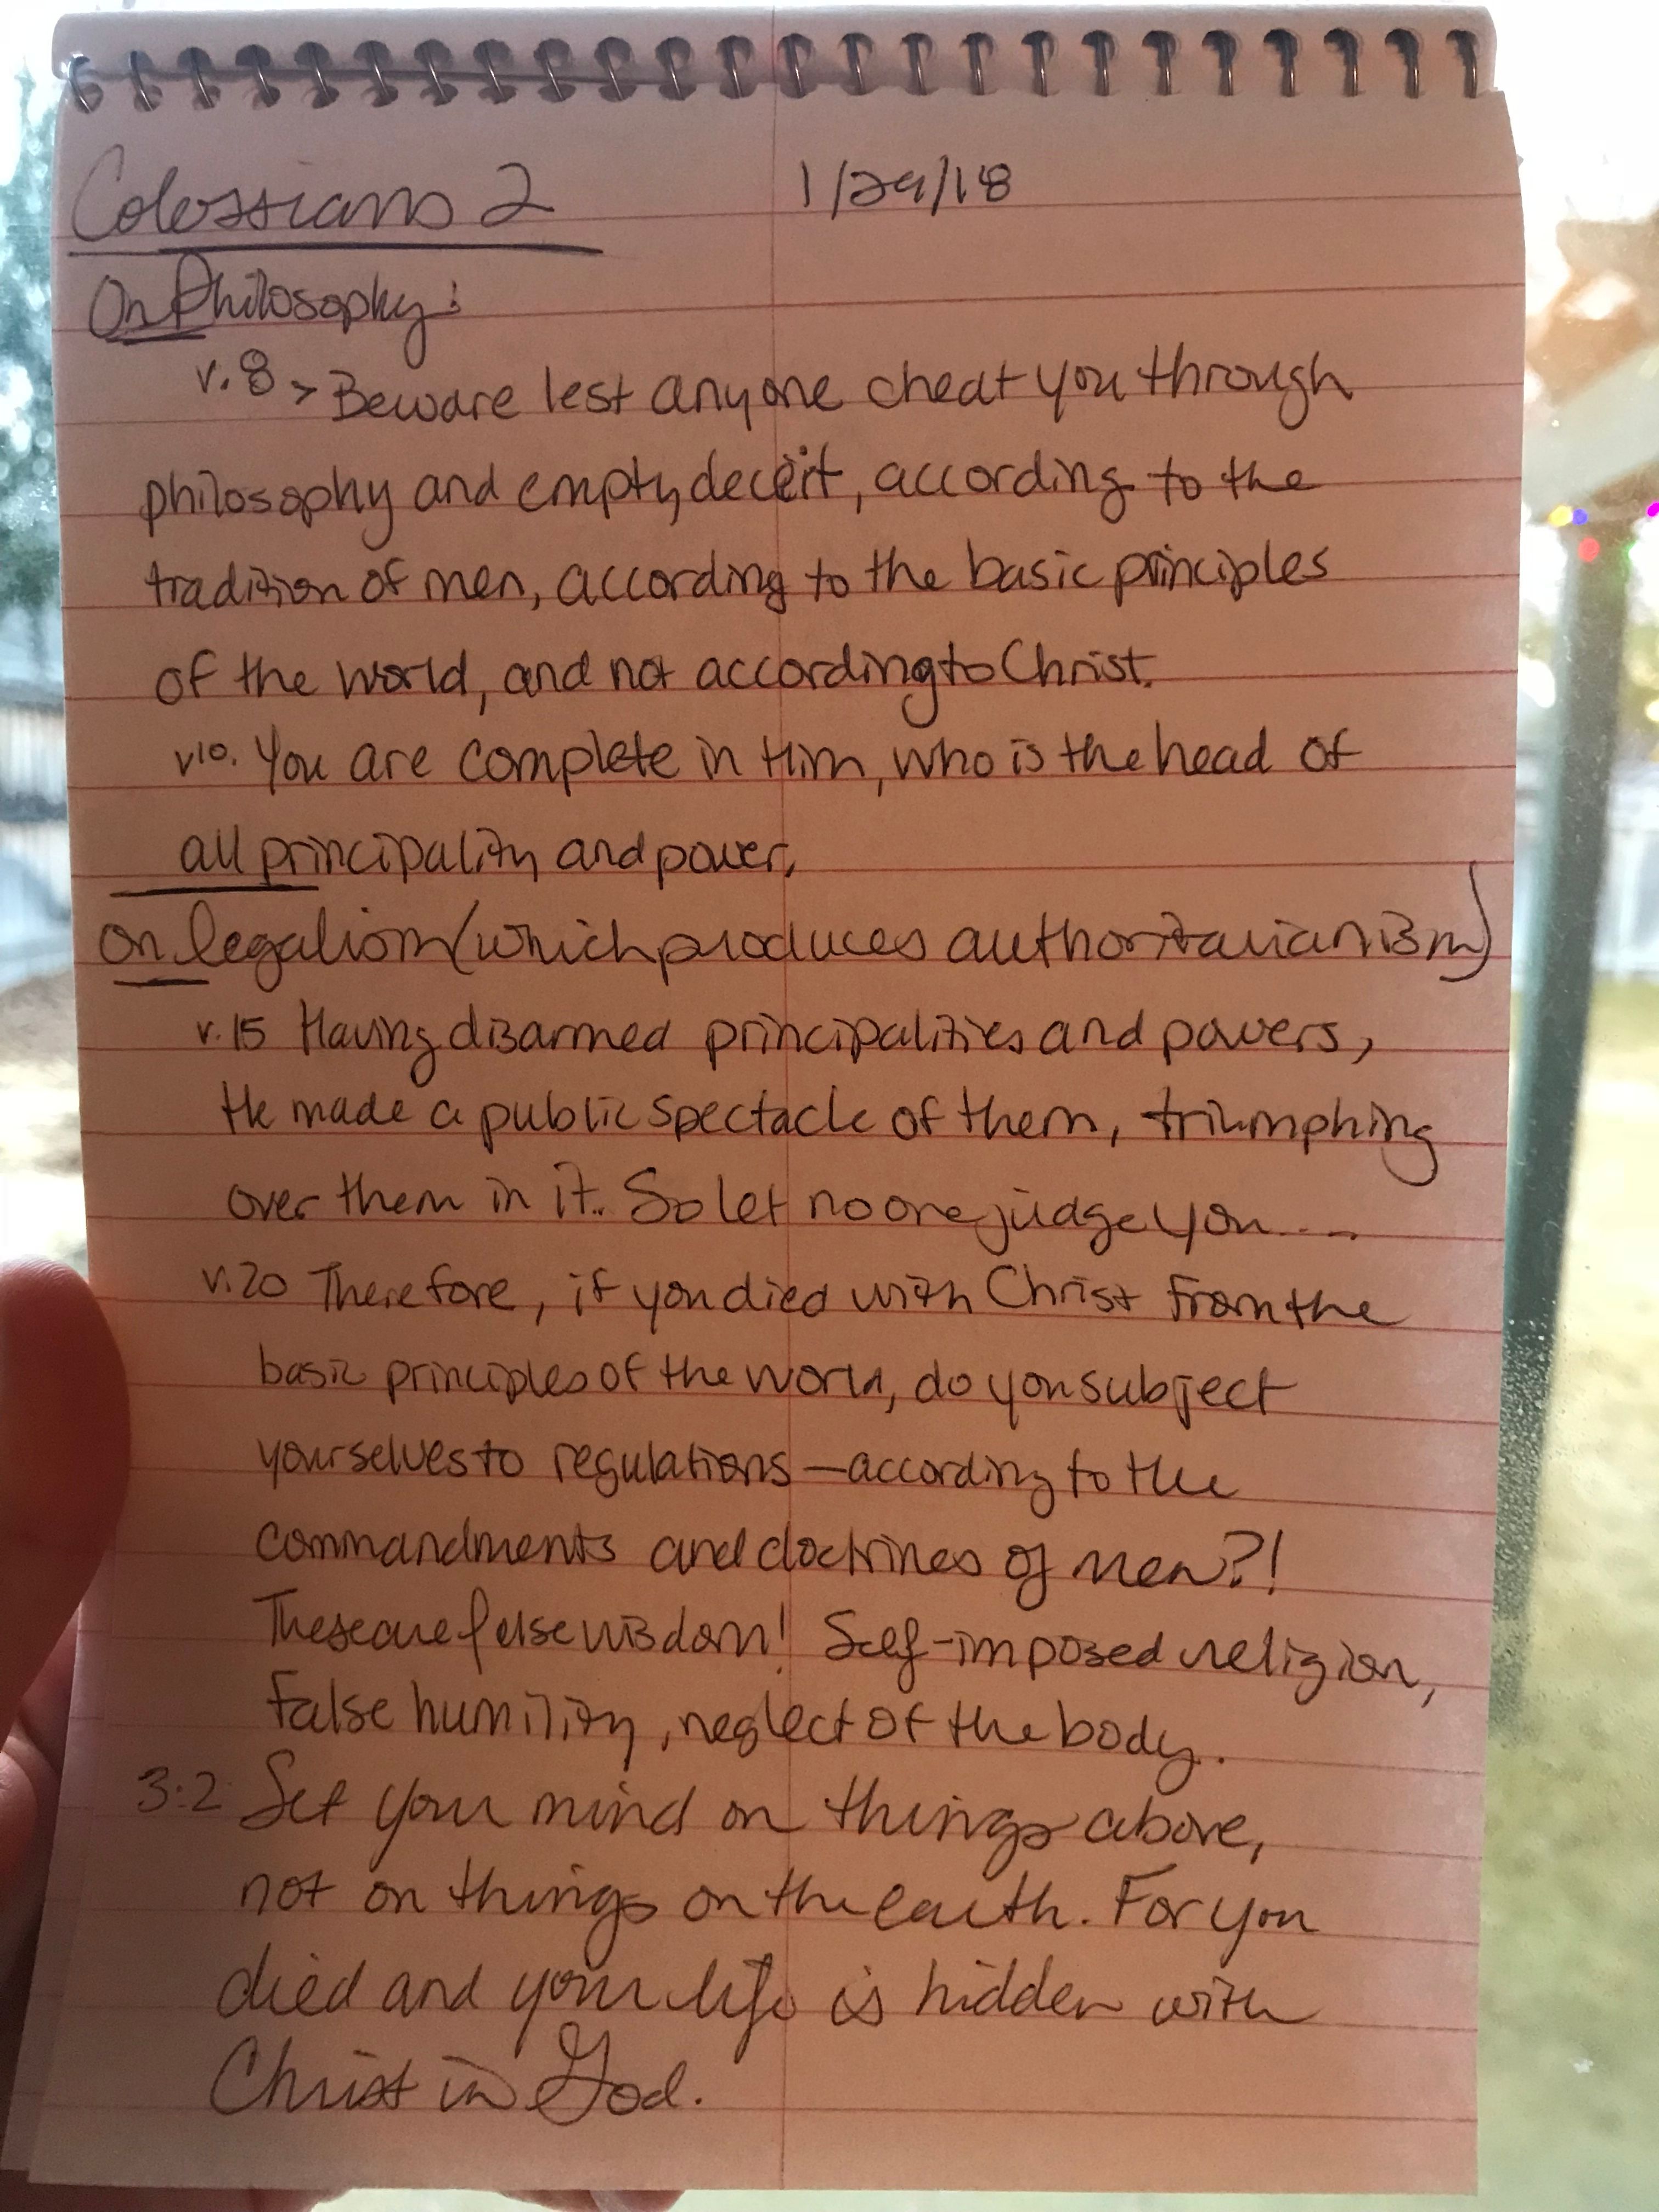 Colossians 2 1/29/18
On Philosophy:
v.8 > Beware lest anyone cheat you through
philosophy and empty deceit, according to the
tradition of men, according to the basic principles
of the world, and not according to Christ.
v10. You are complete in Him, who is the head of
all principality and power.
On legalism (which produces authoritarianism)
v.15 Having disarmed principalities and powers,
He made a public spectacle of them, triumphing
over them in it. So let no one judge you....
v.20 Therefore, if you died with Christ from the
basic principles of the world, do you subject
yourselves to regulations — according to the
commandments and doctrines of men?!
These are false wisdom! Self-imposed religion,
false humility, neglect of the body.
3:2 Set your mind on things above,
not on things on the earth. For you
died and your life is hidden with
Christ in God.